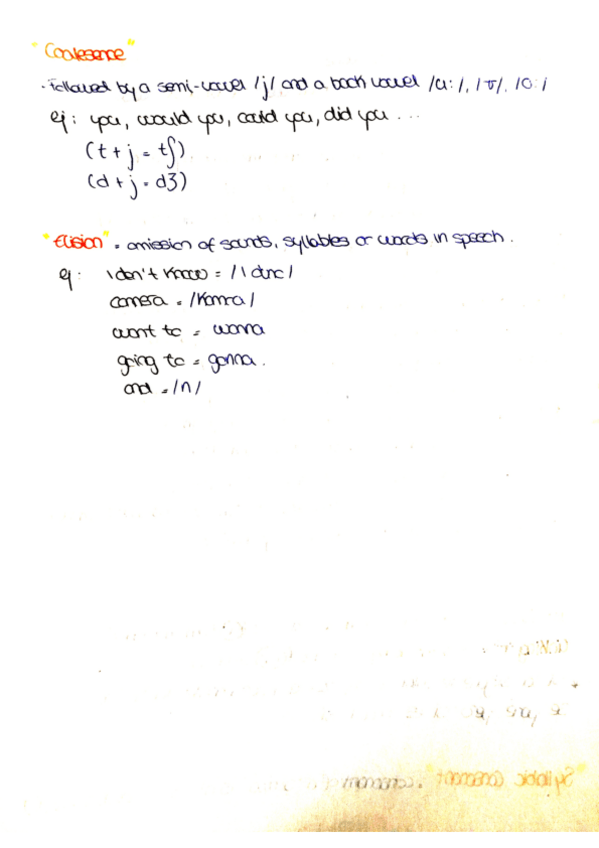 "Coalesence"
· Followed by a semi-vowel /j/ and a back vowel /u:/, /ʊ/, /O:/
ej: you, would you, could you, did you ...
(t + j = tʃ)
(d + j = dʒ)
"Elision" = omission of sounds, syllables or words in speech.
ej: I don't know = /I duno/
camera = /kamra/
want to = wanna
going to = gonna.
and = /n/